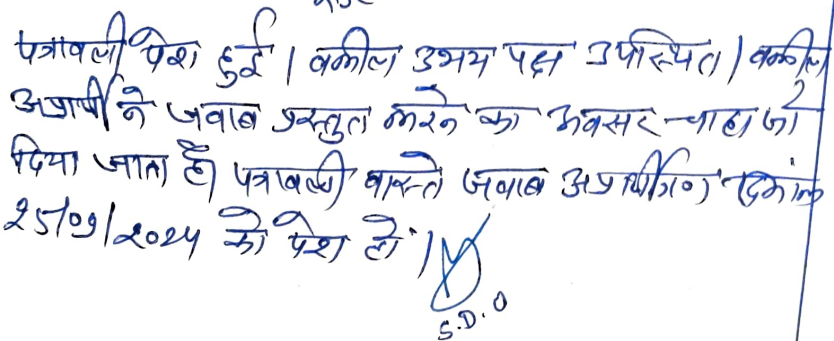 पत्रावली पेश हुई । वकील उभय पक्ष उपस्थित । वकील
अप्रार्थी ने जवाब प्रस्तुत करने का अवसर चाहा जो
दिया जाता है। पत्रावली वास्ते जवाब अप्रार्थीगण दिनांक
25/09/2024 को पेश हो ।
S.D.O